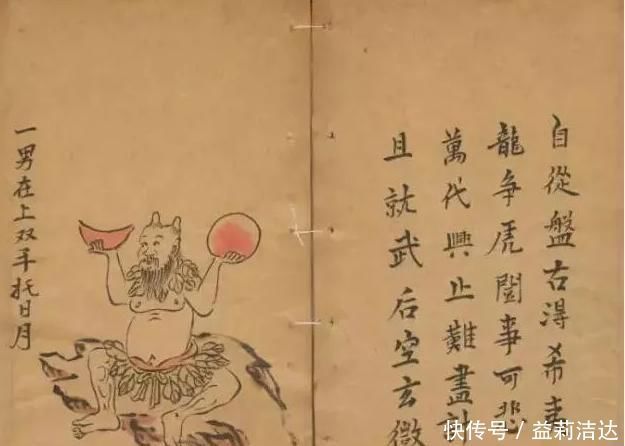 自從盤古淂希
龍争虎鬪事可悲
萬代興止難盡計
且就武后空玄微
一男在上双手托日月
快传号 / 益莉洁达